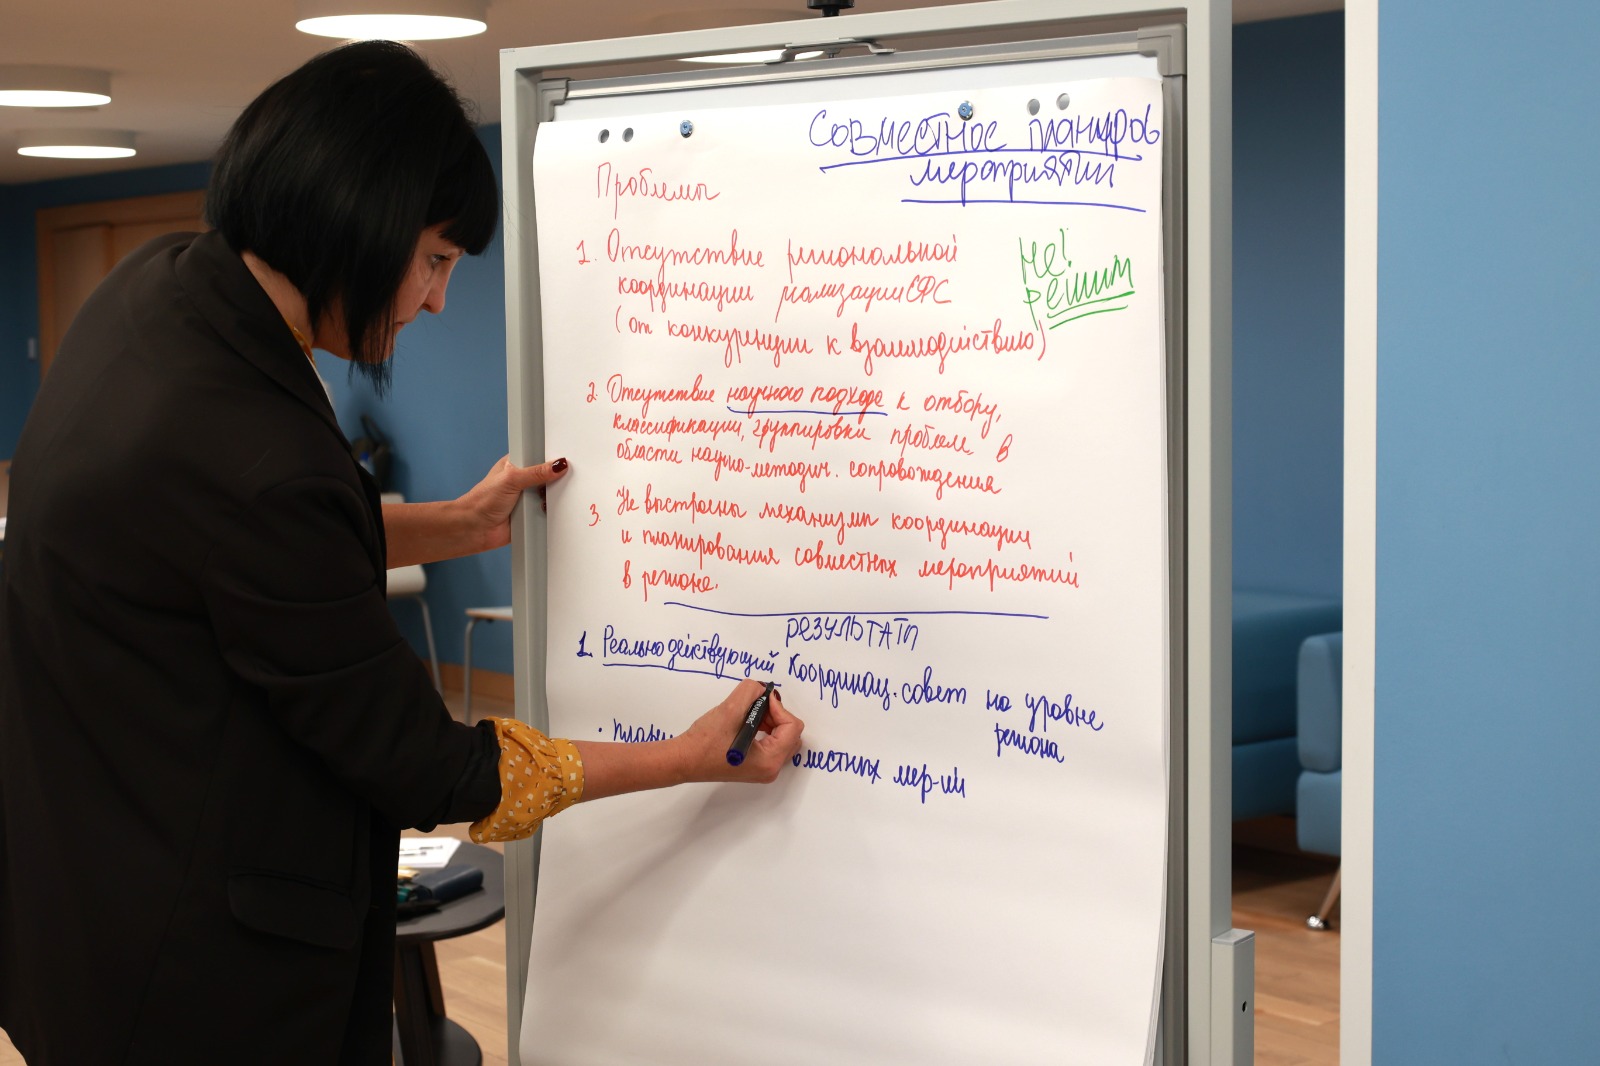 Совместное планиров
мероприятий
Проблемы
1. Отсутствие региональной
координации реализации ЕФС
(от конкуренции к взаимодействию)
Не!
решим
2. Отсутствие научного подхода к отбору,
классификации, группировки проблем в
области научно-методич. сопровождения
3. Не выстроены механизмы координации
и планирования совместных мероприятий
в регионе.
РЕЗУЛЬТАТЫ
1. Реально действующий Координац. совет на уровне
региона
местных мер-ий